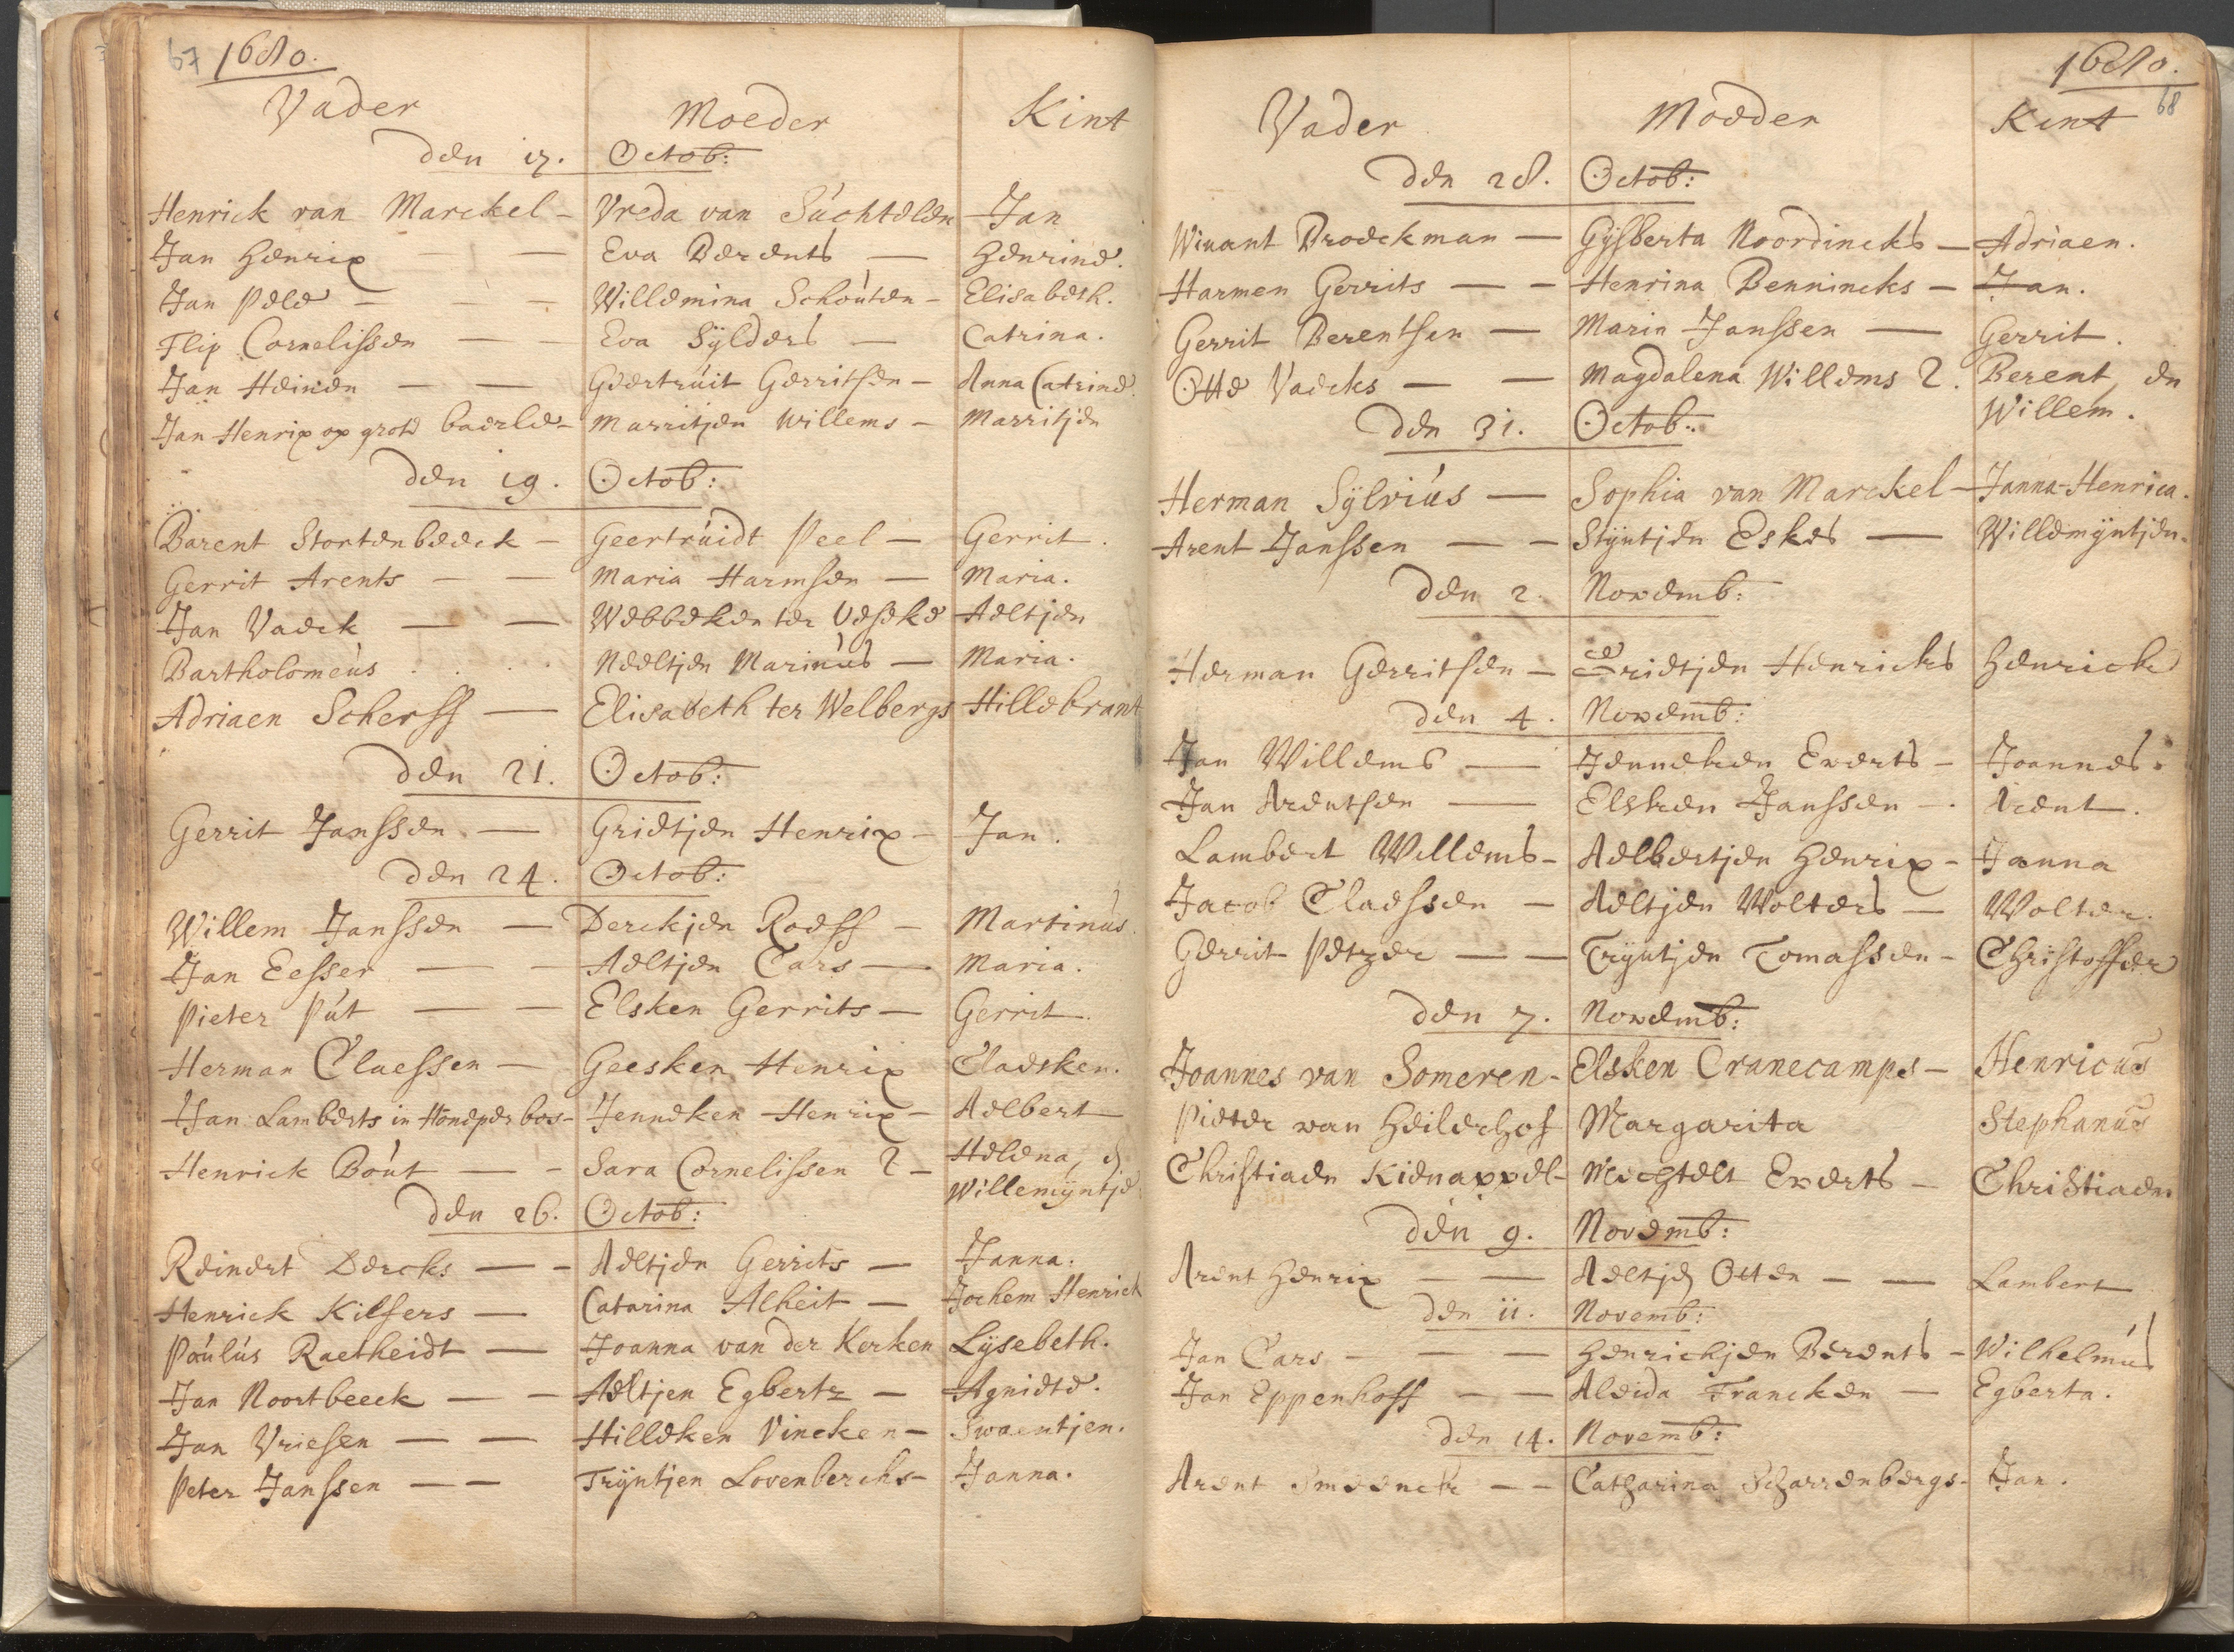 67 1680.
Vader Moeder Kint
den 17. Octob:
Henrick van Marckel - Vreda van Suchtelen Jan
Jan Henrix — — Eva Berents — Henrine.
Jan Pele — — — Willemina Schouten - Elisabeth.
Flip Cornelissen — — Eva Sylders — Catrina.
Jan Heinen — — Geertruit Gerritsen - Anna Catrine.
Jan Henrix op grote baerle - Marritjen Willems - Marritjen
den 19. Octob:
Barent Stortenbeeck - Geertruidt Peel - Gerrit.
Gerrit Arents — — Maria Harmsen — Maria.
Jan Vaeck — — Webbeken ter Veseke Aeltjen
Bartholomeus . . . . Neeltjen Marinus — Maria.
Adriaen Scherff — Elisabeth ter Welbergs Hillebrant
den 21. Octob:
Gerrit Janssen — Grietjen Henrix - Jan.
den 24. Octob:
Willem Janssen — Derckjen Roeff - Martinus.
Jan Eesser — — Aeltjen Cars — Maria.
Pieter Put — — Elsken Gerrits — Gerrit.
Herman Claessen — Geesken Henrix Claesken.
Jan Lamberts in Honeper bos - Jenneken Henrix - Aelbert
Henrick Bout — - Sara Cornelissen 2 - Helena, en
Willemyntje.
den 26. Octob:
Reinert Dercks — - Aeltjen Gerrits — Janna.
Henrick Kilsers — Catarina Alheit — Jochem Henrick
Poulus Raetheidt — Joanna van der Kerken Lysebeth.
Jan Noortbeeck — - Aeltjen Egbertz — Agniete.
Jan Vriesen — — Hilleken Vincken - Swaentjen.
Peter Janssen — — Tryntjen Lovenberchs - Janna.
1680.
68
Vader Moeder Kint
den 28. Octob:
Winant Broeckman — Gysberta Noordincks - Adriaen.
Harmen Gerrits — - Henrina Bennincks - Jan.
Gerrit Berentsen — Marin Janssen — Gerrit.
Otto Vaecks — — Magdalena Willems 2. Berent, en
Willem.
den 31. Octob:
Herman Sylvius — Sophia van Marckel - Janna-Henrica.
Arent Janssen — - Styntjen Eskes — Willemyntjen.
den 2. Novemb:
Herman Gerritsen - Grietjen Henricks Henrick
den 4. Novemb:
Jan Willems — Jenneken Everts - Joannes.
Jan Arentsen — Elsken Janssen - Arent.
Lambert Willems - Aelbertjen Henrix - Janna
Jacob Claessen — Aeltjen Wolters — Wolter.
Gerrit Petzer — — Tryntjen Tomassen - Christoffer
den 7. Novemb:
Joannes van Someren - Elsken Cranecamps - Henricus
Pieter van Heilerhof Margarita Stephanus
Christiaen Kienappel - Mechtelt Everts - Christiaen.
den 9. Novemb:
Arent Henrix — — Aeltjen Otten — — Lambert
den 11. Novemb:
Jan Cars — — — Henrickjen Berents - Wilhelmus
Jan Eppenhoff — — Aleida Francken — Egberta.
den 14. Novemb:
Arent Smeenck — - Catharina Scharrenbergs - Jan.